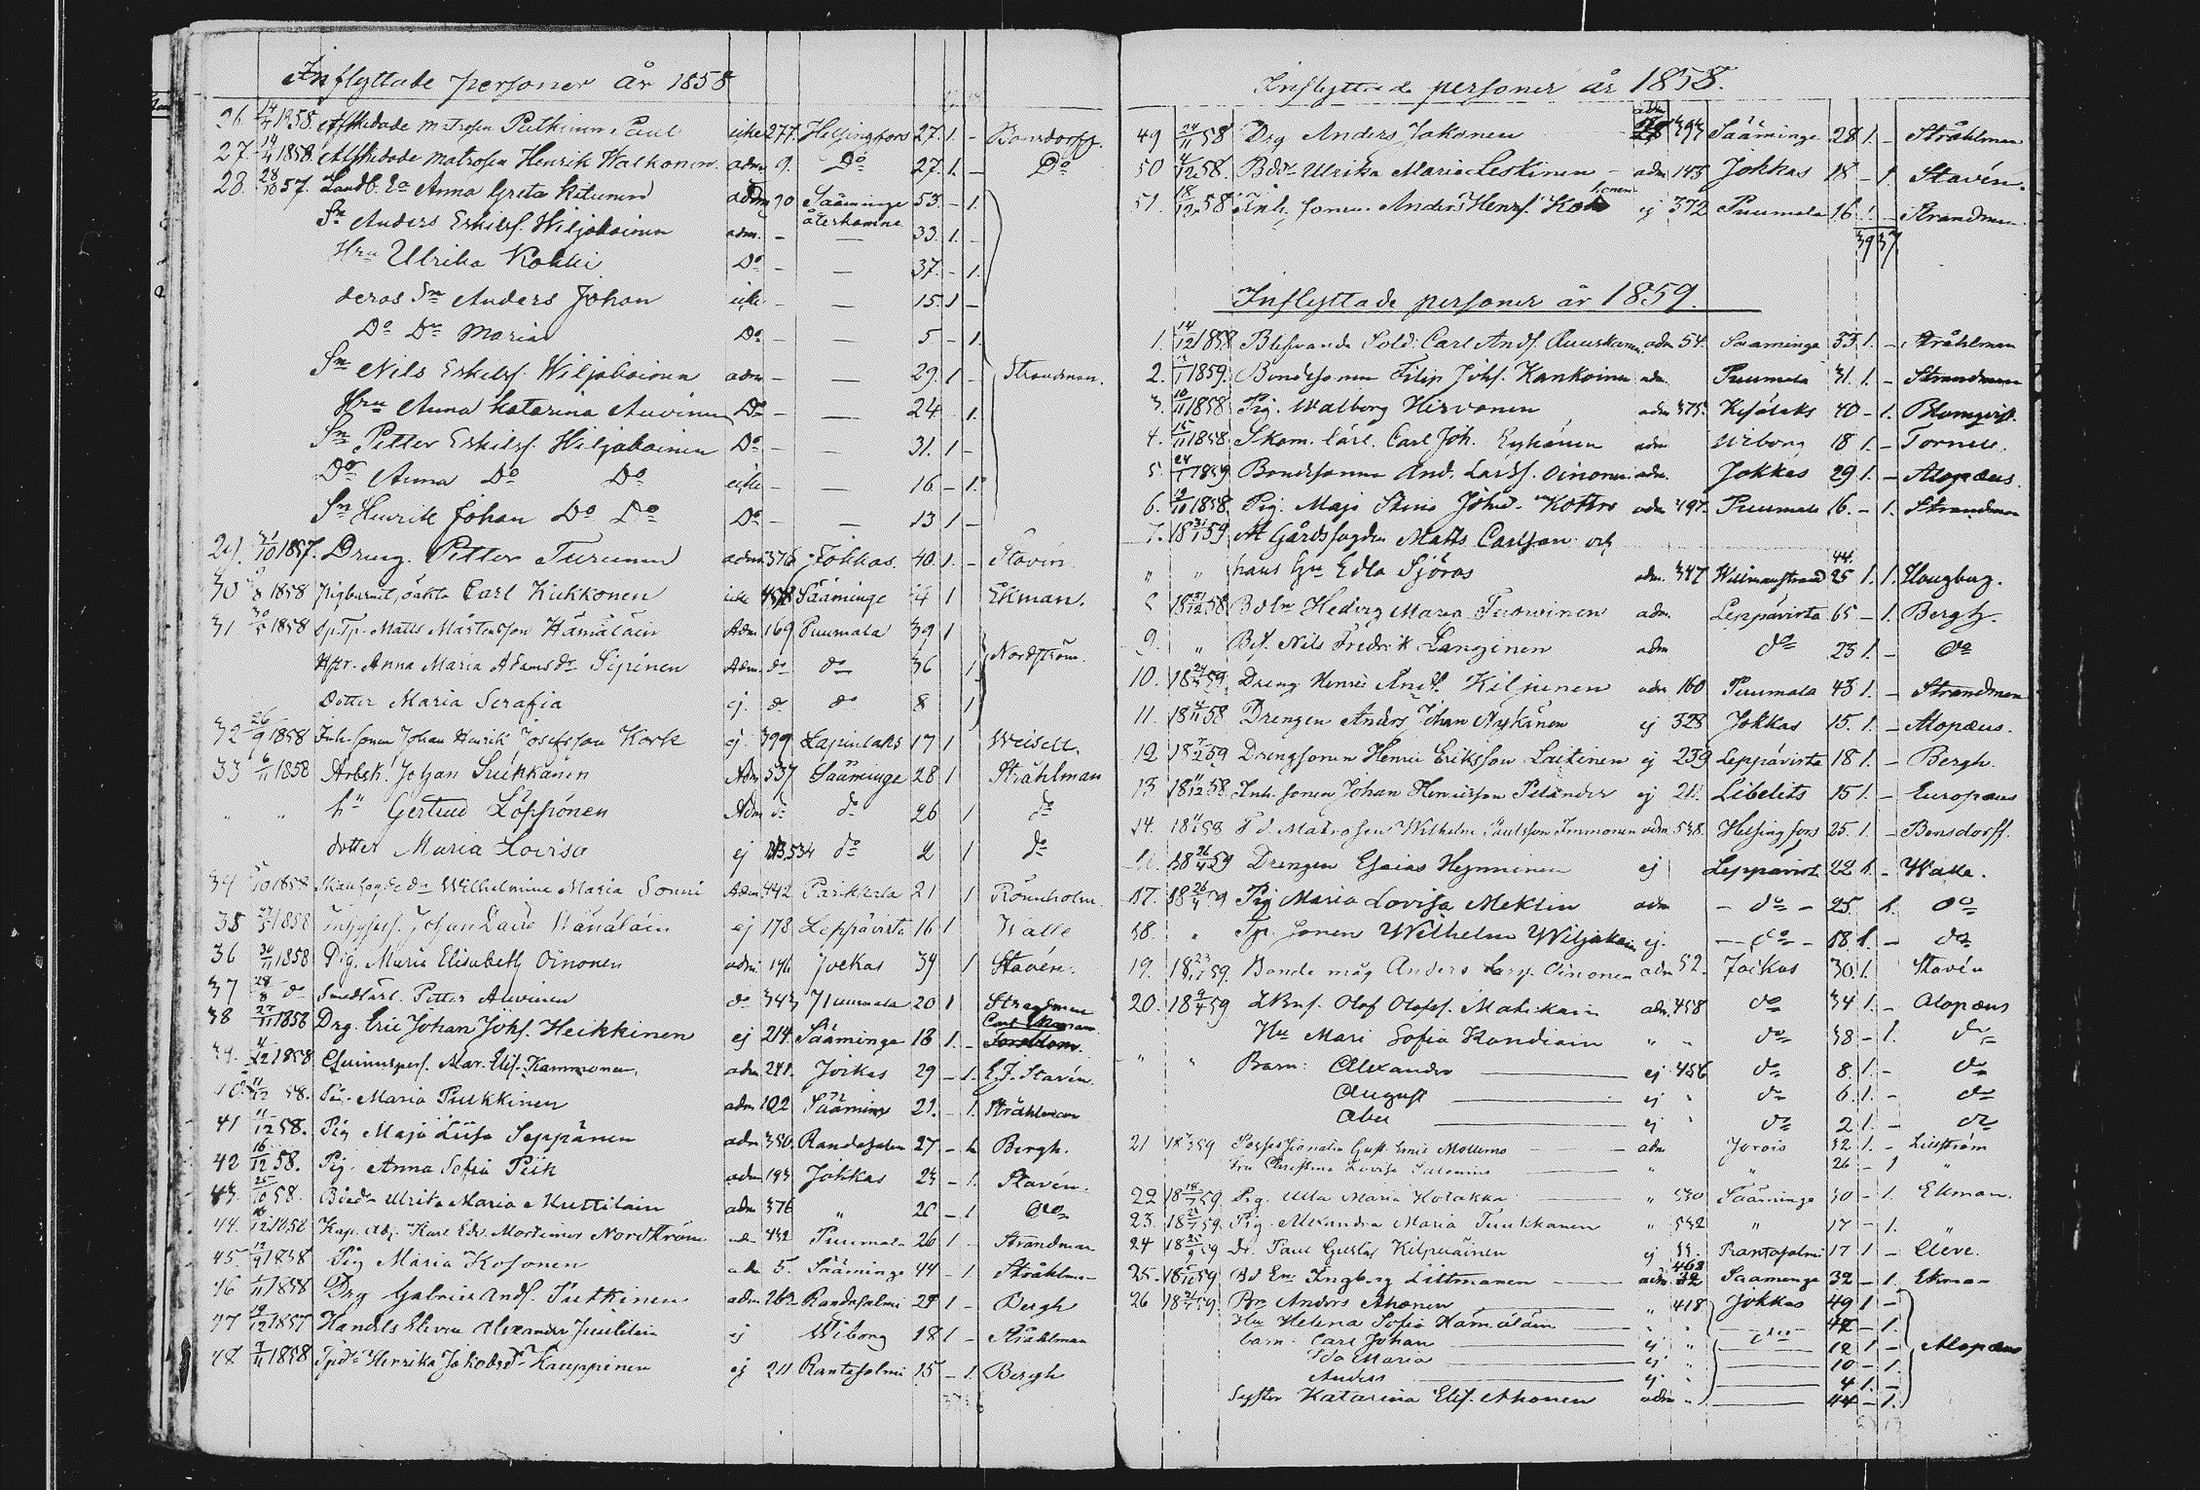 Inflyttade personer år 1858
26 14/4 1858. Afskedade matrosen Putkinen, Paul icke 277. Helsingfors 27. 1. - Bonsdorff.
27. 14/4 1858. Afskedade matrosen Henrik Walkonen. adm 9. Do 27. 1. - Do
28 28/10 57. Anna Greta adm 90 Sääminge 53. - 1.
återkomne
Sn Anders Eskilsf. Wiljakainen adm. - — 33. 1. -
Hru Ulrika Kokki Do - — 37. - 1.
deras Sn Anders Johan icke - — 15. 1 -
Do Dr Maria Do - — 5 - 1.
Sn Nils Eskilsf. Wiljakainen adm - — 29. 1 - Strandman.
Hru Anna Katarina Auvinen Do - — 24 - 1.
Sn Petter Eskilsf. Wiljakainen Do - — 31. 1 -
Dr Anna Do Do icke - — 16 - 1.
Sn Henrik Johan Do Do Do - — 13 1 -
29. /10 1857. Dreng. Petter Turunen adm 376 Jokkas. 40. 1. - Stavén.
30 /8 1858 Carl Kukkonen icke 458 Sääminge 4 1 Ekman.
31 30/5 1858 Matts Mårtensson Hämäläin Adm 169 Puumala 39 1
Hstr. Anna Maria Adamsdr Sipinen Adm. do do 36 1 Nordström.
Dotter Maria Serafia ej. do do 8 1
32 26/9 1858 Inh. sonen Johan Henrik Josefsson Kork ej. 399 Lapinlaks 17 1 Weisell.
33 6/11 1858 Arbsk. Johan Sukkanen Adm 537 Sääminge 28 1 Stråhlman
" " hu Gertrud Löppönen Adm do do 26 1 do
dotter Maria Lovisa ej 534 do 2 1 do
34 /10 1858 Wilhelmina Maria Sonni Adm 442 Parikkala 21 1 Rönnholm.
35 1858 Johan ej 178 Leppävirta 16 1 Walle
36 30/11 1858 Pig. Maria Elisabeth Oinonen adm 146 Jockas 39 1 Stavén.
37 28/8 do Petter Auvinen do 343 Puumala 20 1 Strandman
38 27/11 1858 Drg. Eric Johan Johs. Heikkinen ej 214 Sääminge 18 1. -
39. 4/12 1858. Mar. Elis. Kammonen. adm 241. Joikas 29 - 1. E.J. Stavén.
40. 11/12 58. Pig. Maria Pukkinen adm 102 Sääminge 21. - 1. Stråhlman
41 11/12 58. Pig Maja Liisa Seppänen adm 350. Randasalmi 27 - 1. Bergh.
42 16/12 58. Pig. Anna Sofia Piik adm 193 Jokkas 23 - 1. Stavén.
43. 25/10 58. Ulrika Maria Muttilain adm 376 " 20 - 1 Do
44. 16/12 1858 Kap. Adj. Karl Edv. Mortimer Nordström. 432 Puumala 26 1 - Strandman
45. 12/9 1858 Pig Maria Kosonen adm 5. Sääminge 44 - 1 Stråhlman
46 1/11 1858 Drg Gabriel Ands. Putkinen adm 262 Randasalmi 29 1 - Bergh
47 19/12 1857 Handels Eleven Alexander Juulilain ej Wiborg 18 1 - Stråhlman
48 7/11 1858 Henrika Jakobsdr Kauppinen ej 211 Rantasalmi 15 - 1. Bergh
Inflyttade personer år 1858.
49 24/11 58 Drg Anders Jakonen 393 Sääminge 28 1. - Stråhlman
50 4/12 58. Ulrika Maria Leskinen - adm 143 Jokkas 18 - 1. Stavén.
51. 18/12 58 Inh. sonen Anders Henrs. ej 372 Puumala 16 1 - Strandman
39 37
Inflyttade personer år 1859.
1. 14/12 1858 Sold. Carl Ands. adm 54. Saaminge 33 1. - Stråhlman
2. /1 1859. Bondesonen Filip Johs. Kankoinen adm. Puumala 31. 1. - Strandman
3. 10/11 1858 Pig. Walborg Hirvonen adm 375. Kesälaks 40 - 1. Blomqvist.
4. 15/11 1858. Skom. lärl. Carl Joh. adm Wiborg 18 1. - Tornell.
5. 24/1 1859 Bondesonen And. Larss. Oinonen adm. Jokkas 29 1. - Alopæus.
6. 12/10 1858. Pig. Maja Stina Kottro adm 497. Puumala 16. - 1. Strandman
7. 18 31/1 59 At Gårdsfogden Matts Carlson och 44.
" " hans Hu Edla Sjöros adm. 347 Willmanstrand 25 1. 1. Hougberg.
8 18 21/12 58 Hedvig Maria Tuovinen adm. Leppävirta 65 - 1. Bergh.
9. " Nils Fredrik Langinen adm do 23 1. - do
10. 18 24/ 59. Dreng Henric Ands. Kiljunen adm 160 Puumala 43 1. - Strandman
11. 18 4/11 58 Drengen Anders Johan Nykänen ej 323 Jokkas 15. 1. - Alopæus.
12 18 /2 59 Drengsonen Henric Eriksson Laitinen ej 239 Leppävirta 18 1. - Bergh.
13 18 11/12 58. Inh. sonen Johan Henriksson Pelander ej 211. Libelits 15 1. - Europæus
14. 18 58 F.d. Matrosen Wilhelm Paulsson Immonen adm 538. Helsingfors 25. 1. - Bonsdorff.
18 26/4 59 Drengen Esaias Heynninen ej Leppävirt 22 1. - Walle.
17. 18 26/4 59 Pig Maria Lovisa Meklin adm - do - 25. 1. do
18. " Sonen Wilhelm Wiljakain ej. - do - 18 1. - do
19. 18 23/ 59. Bonde måg Anders Lars. Oinonen adm 52. Joikas 30. 1. Stavén
20. 18 9/4 59 Olof Olofss. Matikain adm. 458 do 34 1. - Alopæus
Hu Mari Sofia Kandiain " " do 38 - 1. do
" " Barn: Alexander — ej 456 do 8 1. - do
August — ej " do 6 1. - do
Abel — ej " do 2 1. - do
21 18 59 Gust. Ernis Mollerus — adm Jorois 32 1. - Lillström
Fru Christina Lovisa " " 26 - 1 "
22 18 18/ 59 Pig. Ulla Maria Kotakka " 530 Sääminge 30 - 1. Ekman.
23. 18 59. Pig. Alexandra Maria Tuukkanen " 532 " 17 - 1. "
24 18 25/9 59 Dr. Paul Gustaf Kilpeläinen ej 39. Rantasalmi 17 1 - Cleve.
25. 18 /10 59 Ingborg Littmanen — adm 32 Saaminge 32 - 1. Ekman
26 18 59. Br. Anders Ahonen — " 418 Jokkas 49 1 -
Hu Helena Sofia Hämäläin " " do 42 - 1.
barn. Carl Johan — ej " — 12 1 - Alopæus
Ida Maria — ej " — 10 - 1
Anders — ej " — 4 1. -
Syster Katarina Elis. Ahonen adm " — 44 - 1.